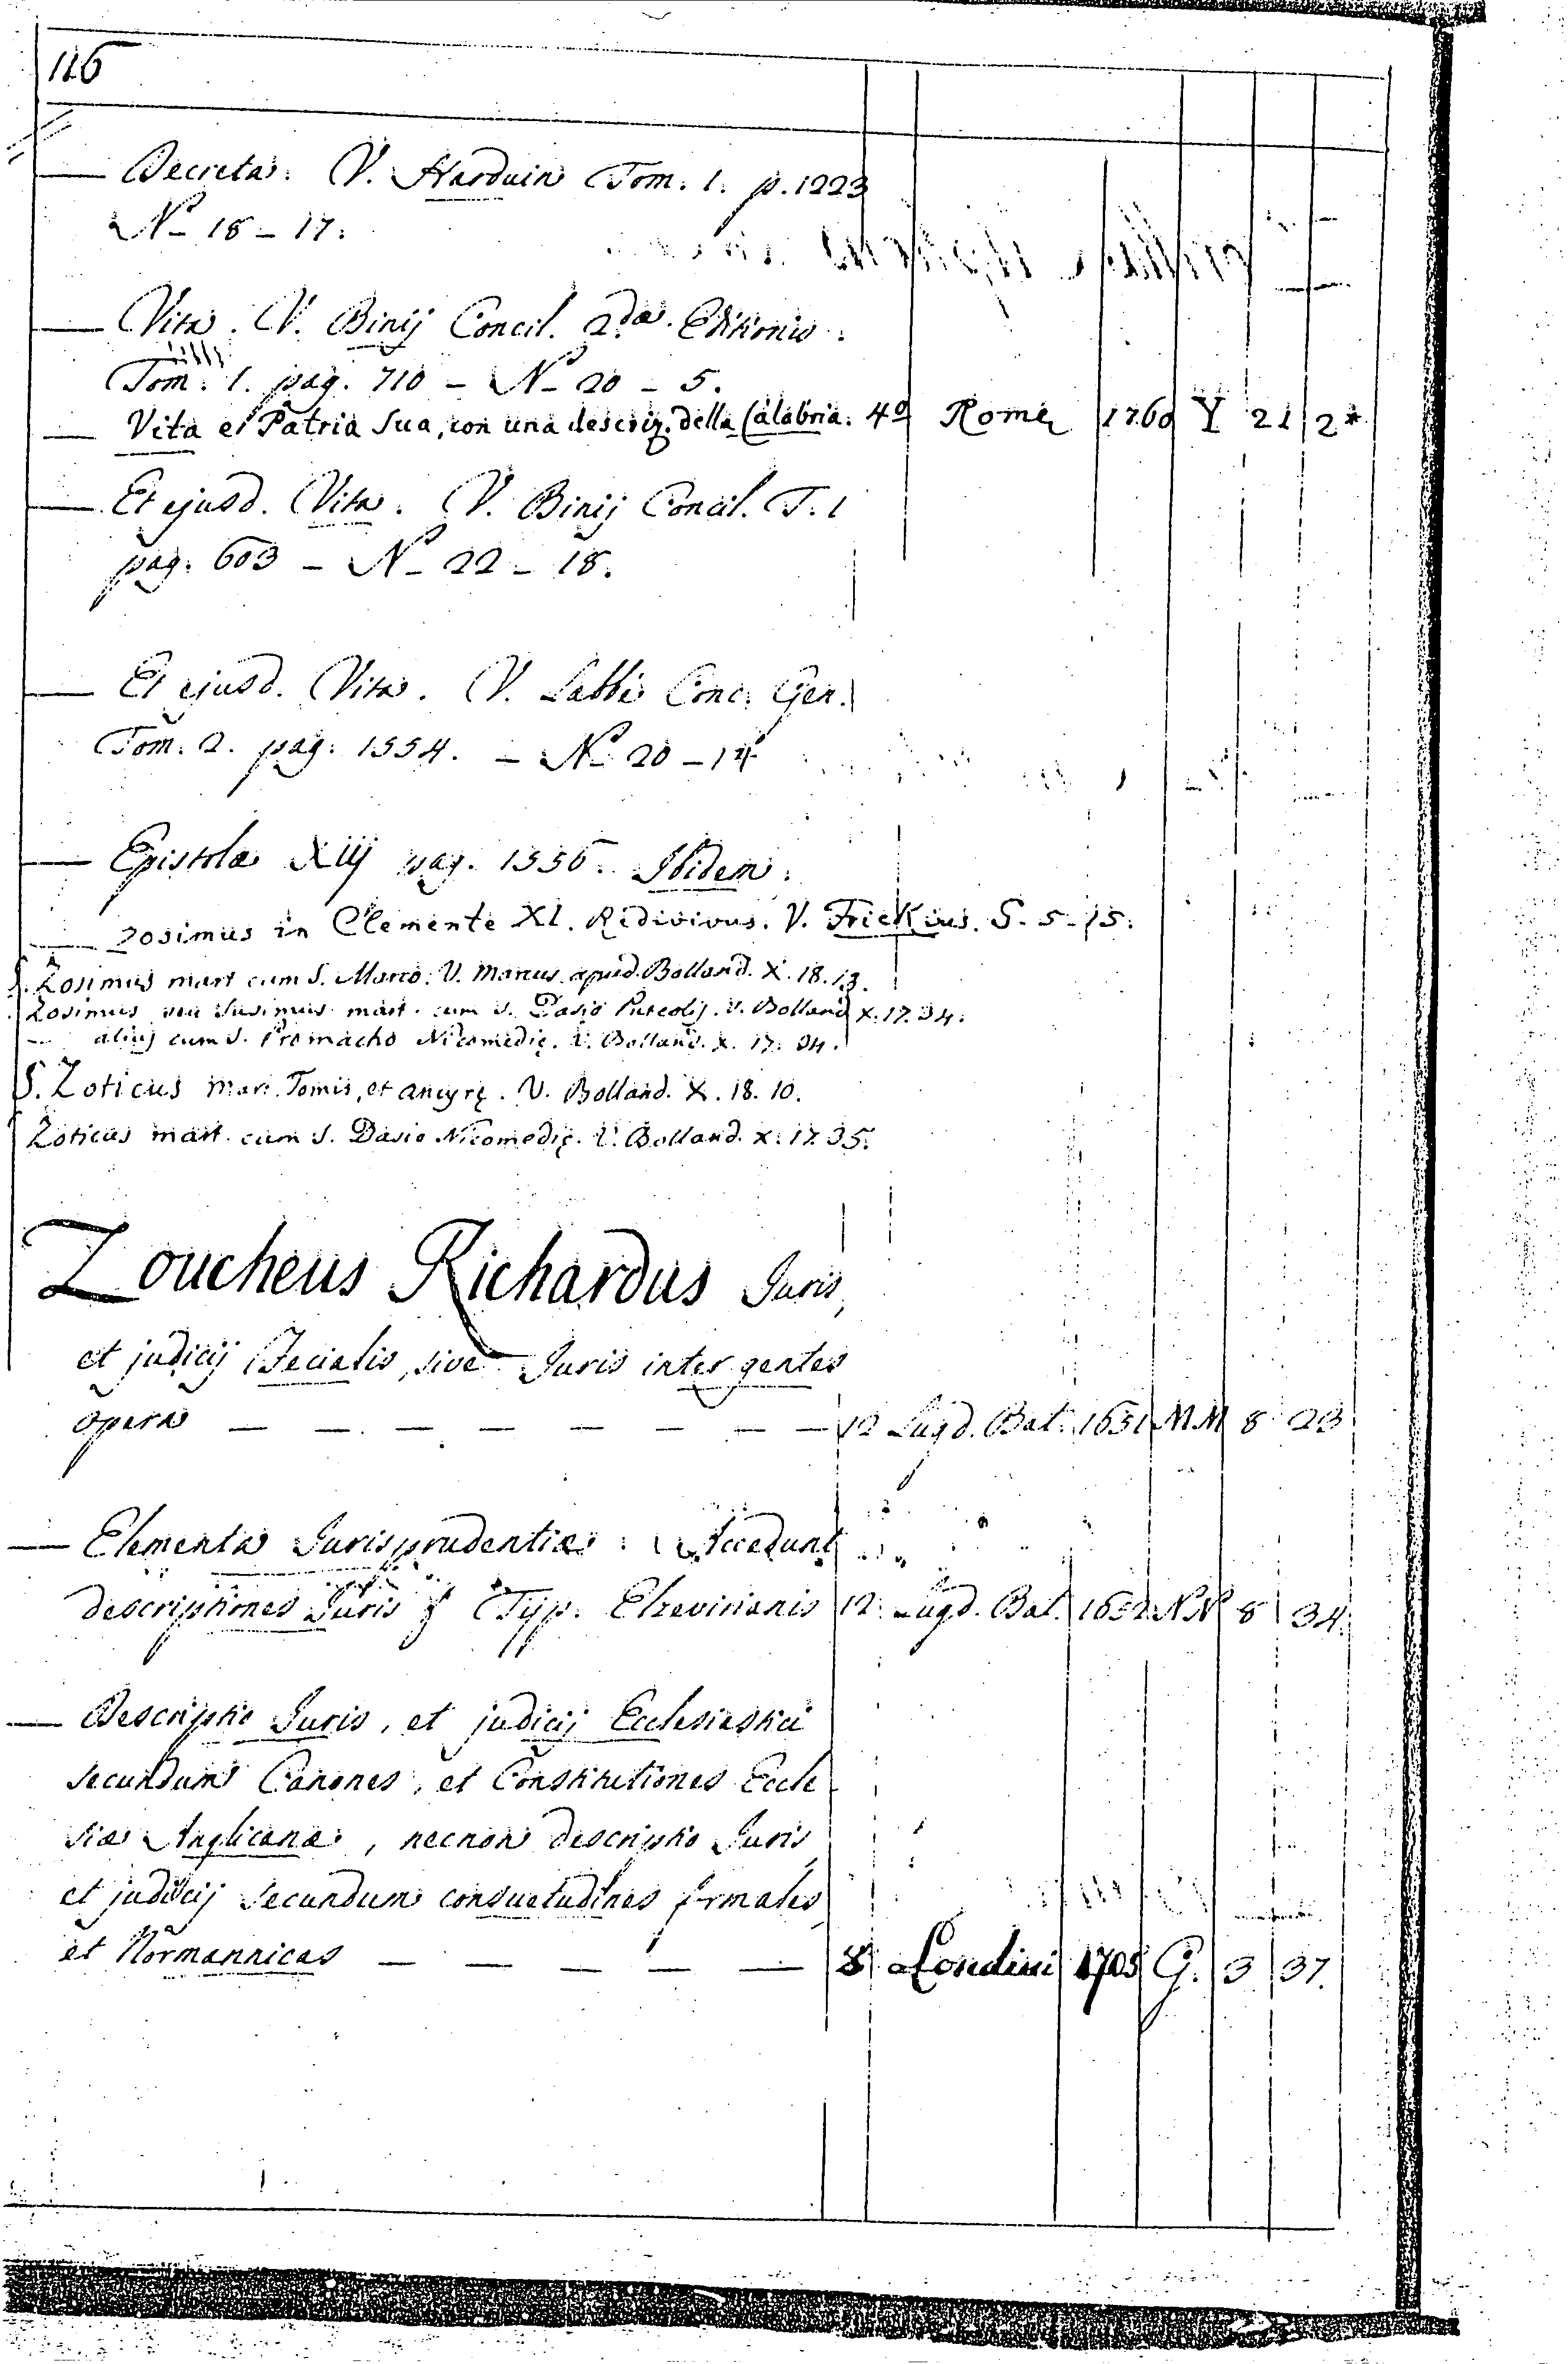 116
— Decreta. V. Harduin Tom. 1. p. 1223
N – 18 – 17.
— Vita. V. Binij Concil. 2.dæ Editionis.
Tom. 1. pag. 710 – N – 20 – 5.
— Vita et Patria sua, con una descriz. della Calabria. 4º Romæ 1760 Y 21 2*
— Et ejusd. Vita. V. Binij Concil. T. 1
pag. 603 – N – 22 – 18.
— Et ejusd. Vita. V. Labbe Conc. Gen.
Tom. 2. pag. 1554. – N – 20 – 14
— Epistolæ XIIj pag. 1556. Ibidem.
— Zosimus in Clemente XI. Redivivus. V. Frickius. S. 5 – 15.
S. Zosimus mart cum S. Marco. V. Marcus apud Bolland. X. 18. 13.
Zosimus seu Susimus mart. cum S. Dasio Puteolij. V. Bolland X. 17. 34.
— alius cum S. Promacho Nicomedię. V. Bolland. X. 17. 34.
S. Zoticus Mar. Tomis, et ancyrę. V. Bolland. X. 18. 10.
Zoticus mart. cum S. Dasio Nicomedię. V. Bolland. X. 17. 35.
Zoucheus Richardus Juris,
et judicij Fecialis, sive Juris inter gentes
opera — — — — — — — — 12 Lugd. Bat. 1651 MM 8 23
— Elementa Jurisprudentiæ. Accedunt
descriptiones Juris & Typ. Elzevirianis 12 Lugd. Bat. 1652 NN 8 34.
— Descriptio Juris, et judicij Ecclesiastici
secundum Canones, et Constitutiones Eccle
siæ Anglicanæ, necnon descriptio Juris,
et judicij secundum consuetudines
et Normannicas — — — — — 8 Londini 1705 G. 3 37.